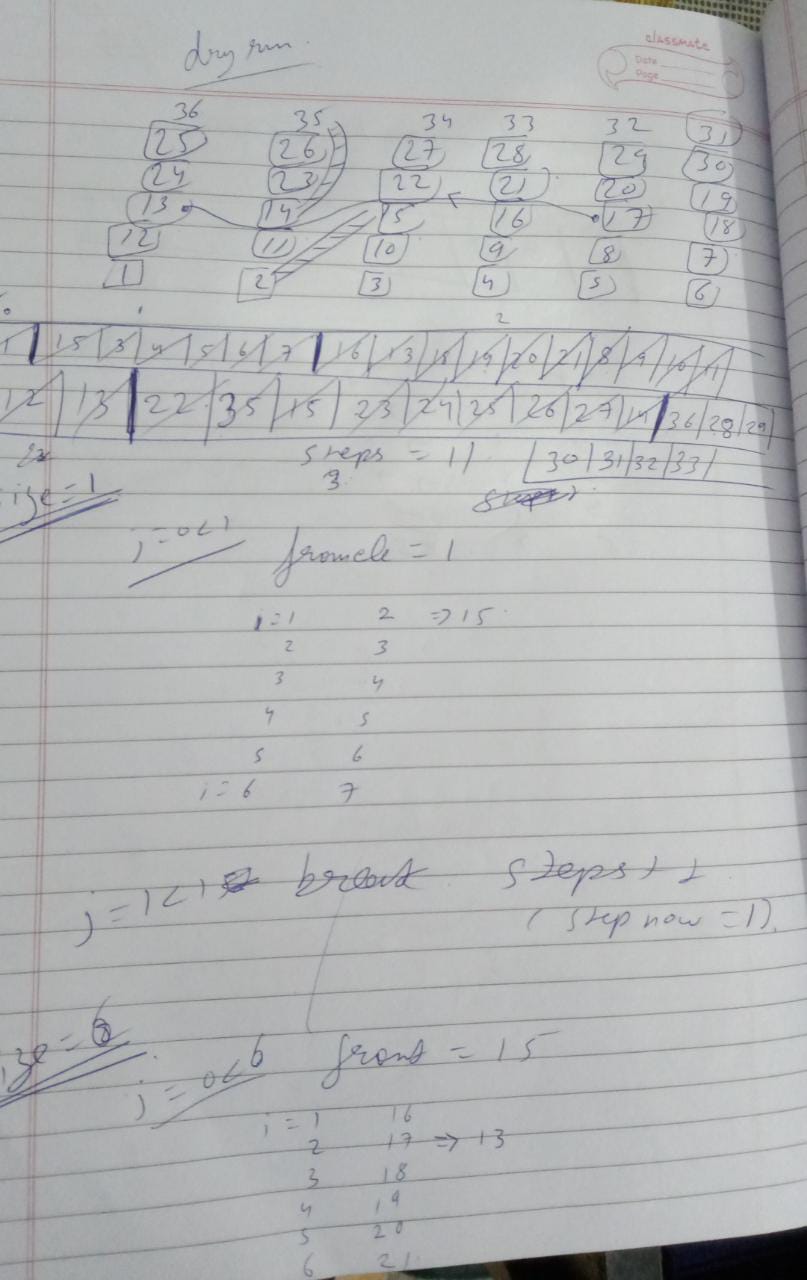 dry run.
classmate
Date
Page
36 35 34 33 32 31
25 26 27 28 29 30
24 23 22 21 20 19
13 14 15 16 17 18
12 11 10 9 8 7
1 2 3 4 5 6
1 2
1 15 3 4 5 6 7 16 13 18 19 20 21 8 9 10 11
12 13 22 35 15 23 24 25 26 27 14 36 28 29
steps = 1 30 31 32 33
3
ize = 1
j = 0 < 1 fromele = 1
i = 1 2 => 15
2 3
3 4
4 5
5 6
i = 6 7
j = 1 < 1 break steps++
(step now = 1)
ize = 6
j = 0 < 6 front = 15
i = 1 16
2 17 => 13
3 18
4 19
5 20
6 21